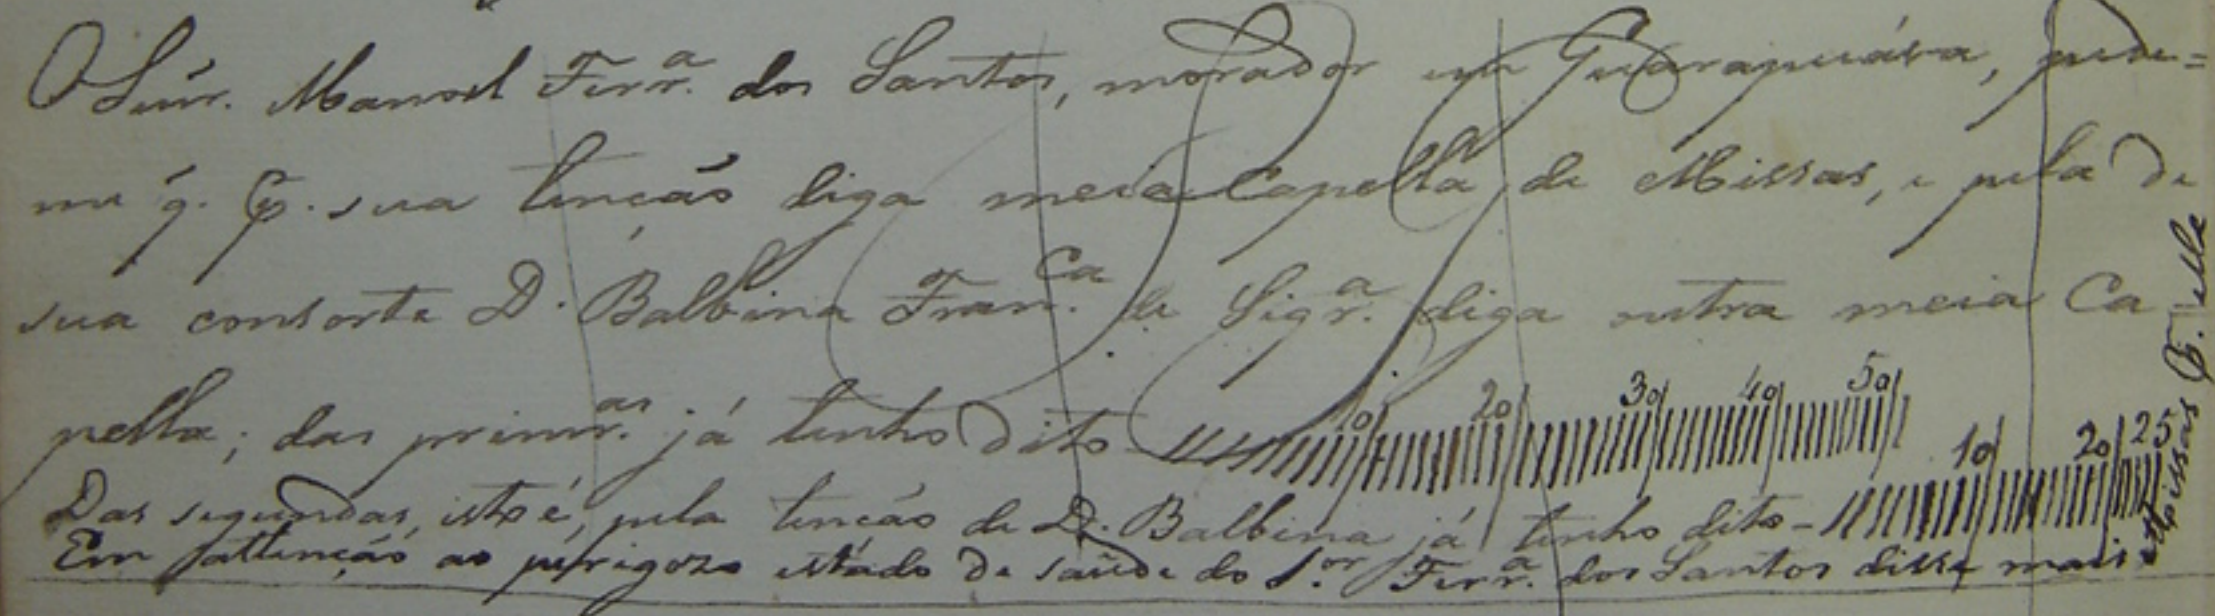 O Snr. Manoel Ferrª. dos Santos, morador em Guarapuáva, pede=
me q. p. sua tenção diga meia Capella de Missas, e pela de
sua consorte D. Balbina Franca. de Siqrª. diga outra meia Ca
pella; das primras. já tenho dito 10 20 30 40 50
Das segundas, isto é, pela tenção de D. Balbina já tenho dito - 10 20 25
Em attenção ao perigozo estado de saúde do Sor. Ferrª. dos Santos disse mais
Missas p. elle